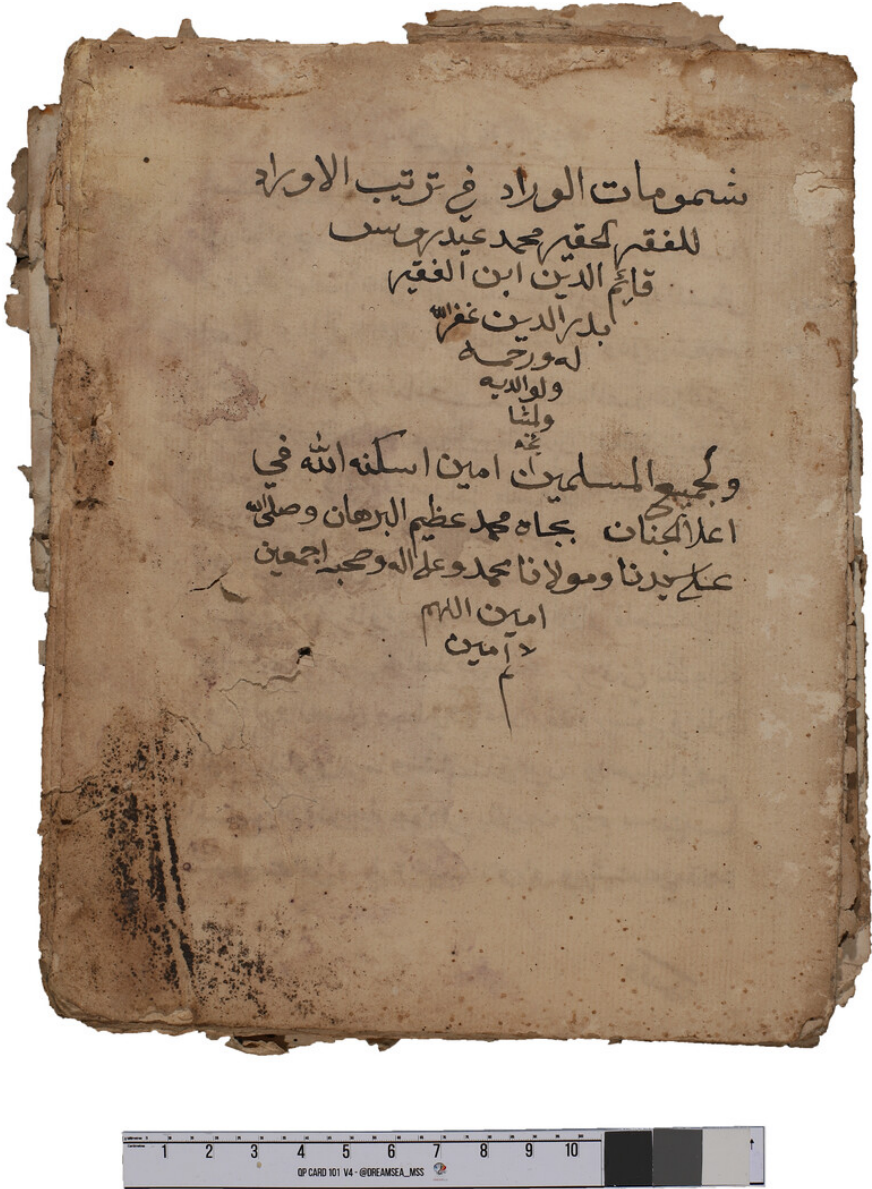 شمومات الوراد في ترتيب الاوراد
للفقير الحقير محمد عيدروس
قائم الدين ابن الفقير
بدر الدين غفر الله
له ورحمه
ولوالديه
ولمشا
يخه
ولجميع المسلمين امين اسكنه الله في
اعلا الجنان بجاه محمد عظيم البرهان وصلى الله
على سيدنا ومولانا محمد وعلى اله وصحبه اجمعين
امين اللهم
امين
م
1 2 3 4 5 6 7 8 9 10
QP CARD 101 V4 - @DREAMSEA_MSS